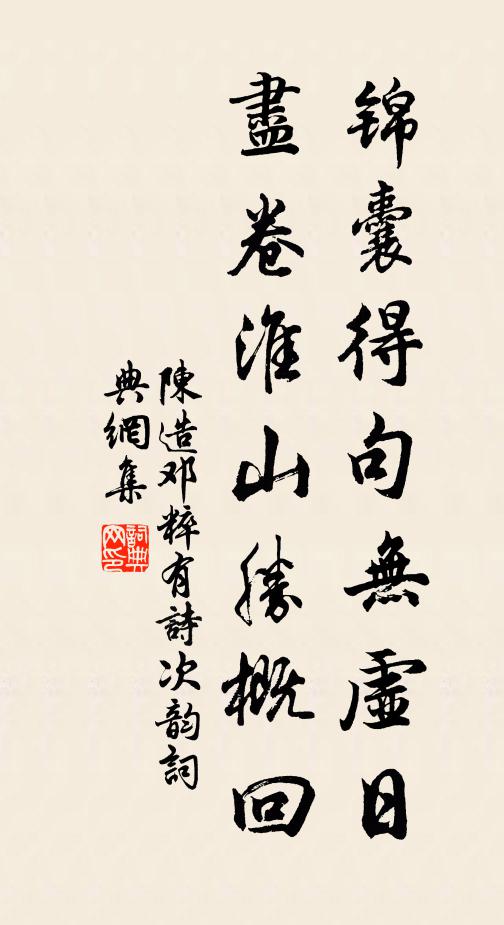 锦囊得句無虛日
盡卷淮山勝概回
陳造邓粹有詩次韵詞
典網集
詞典
网印